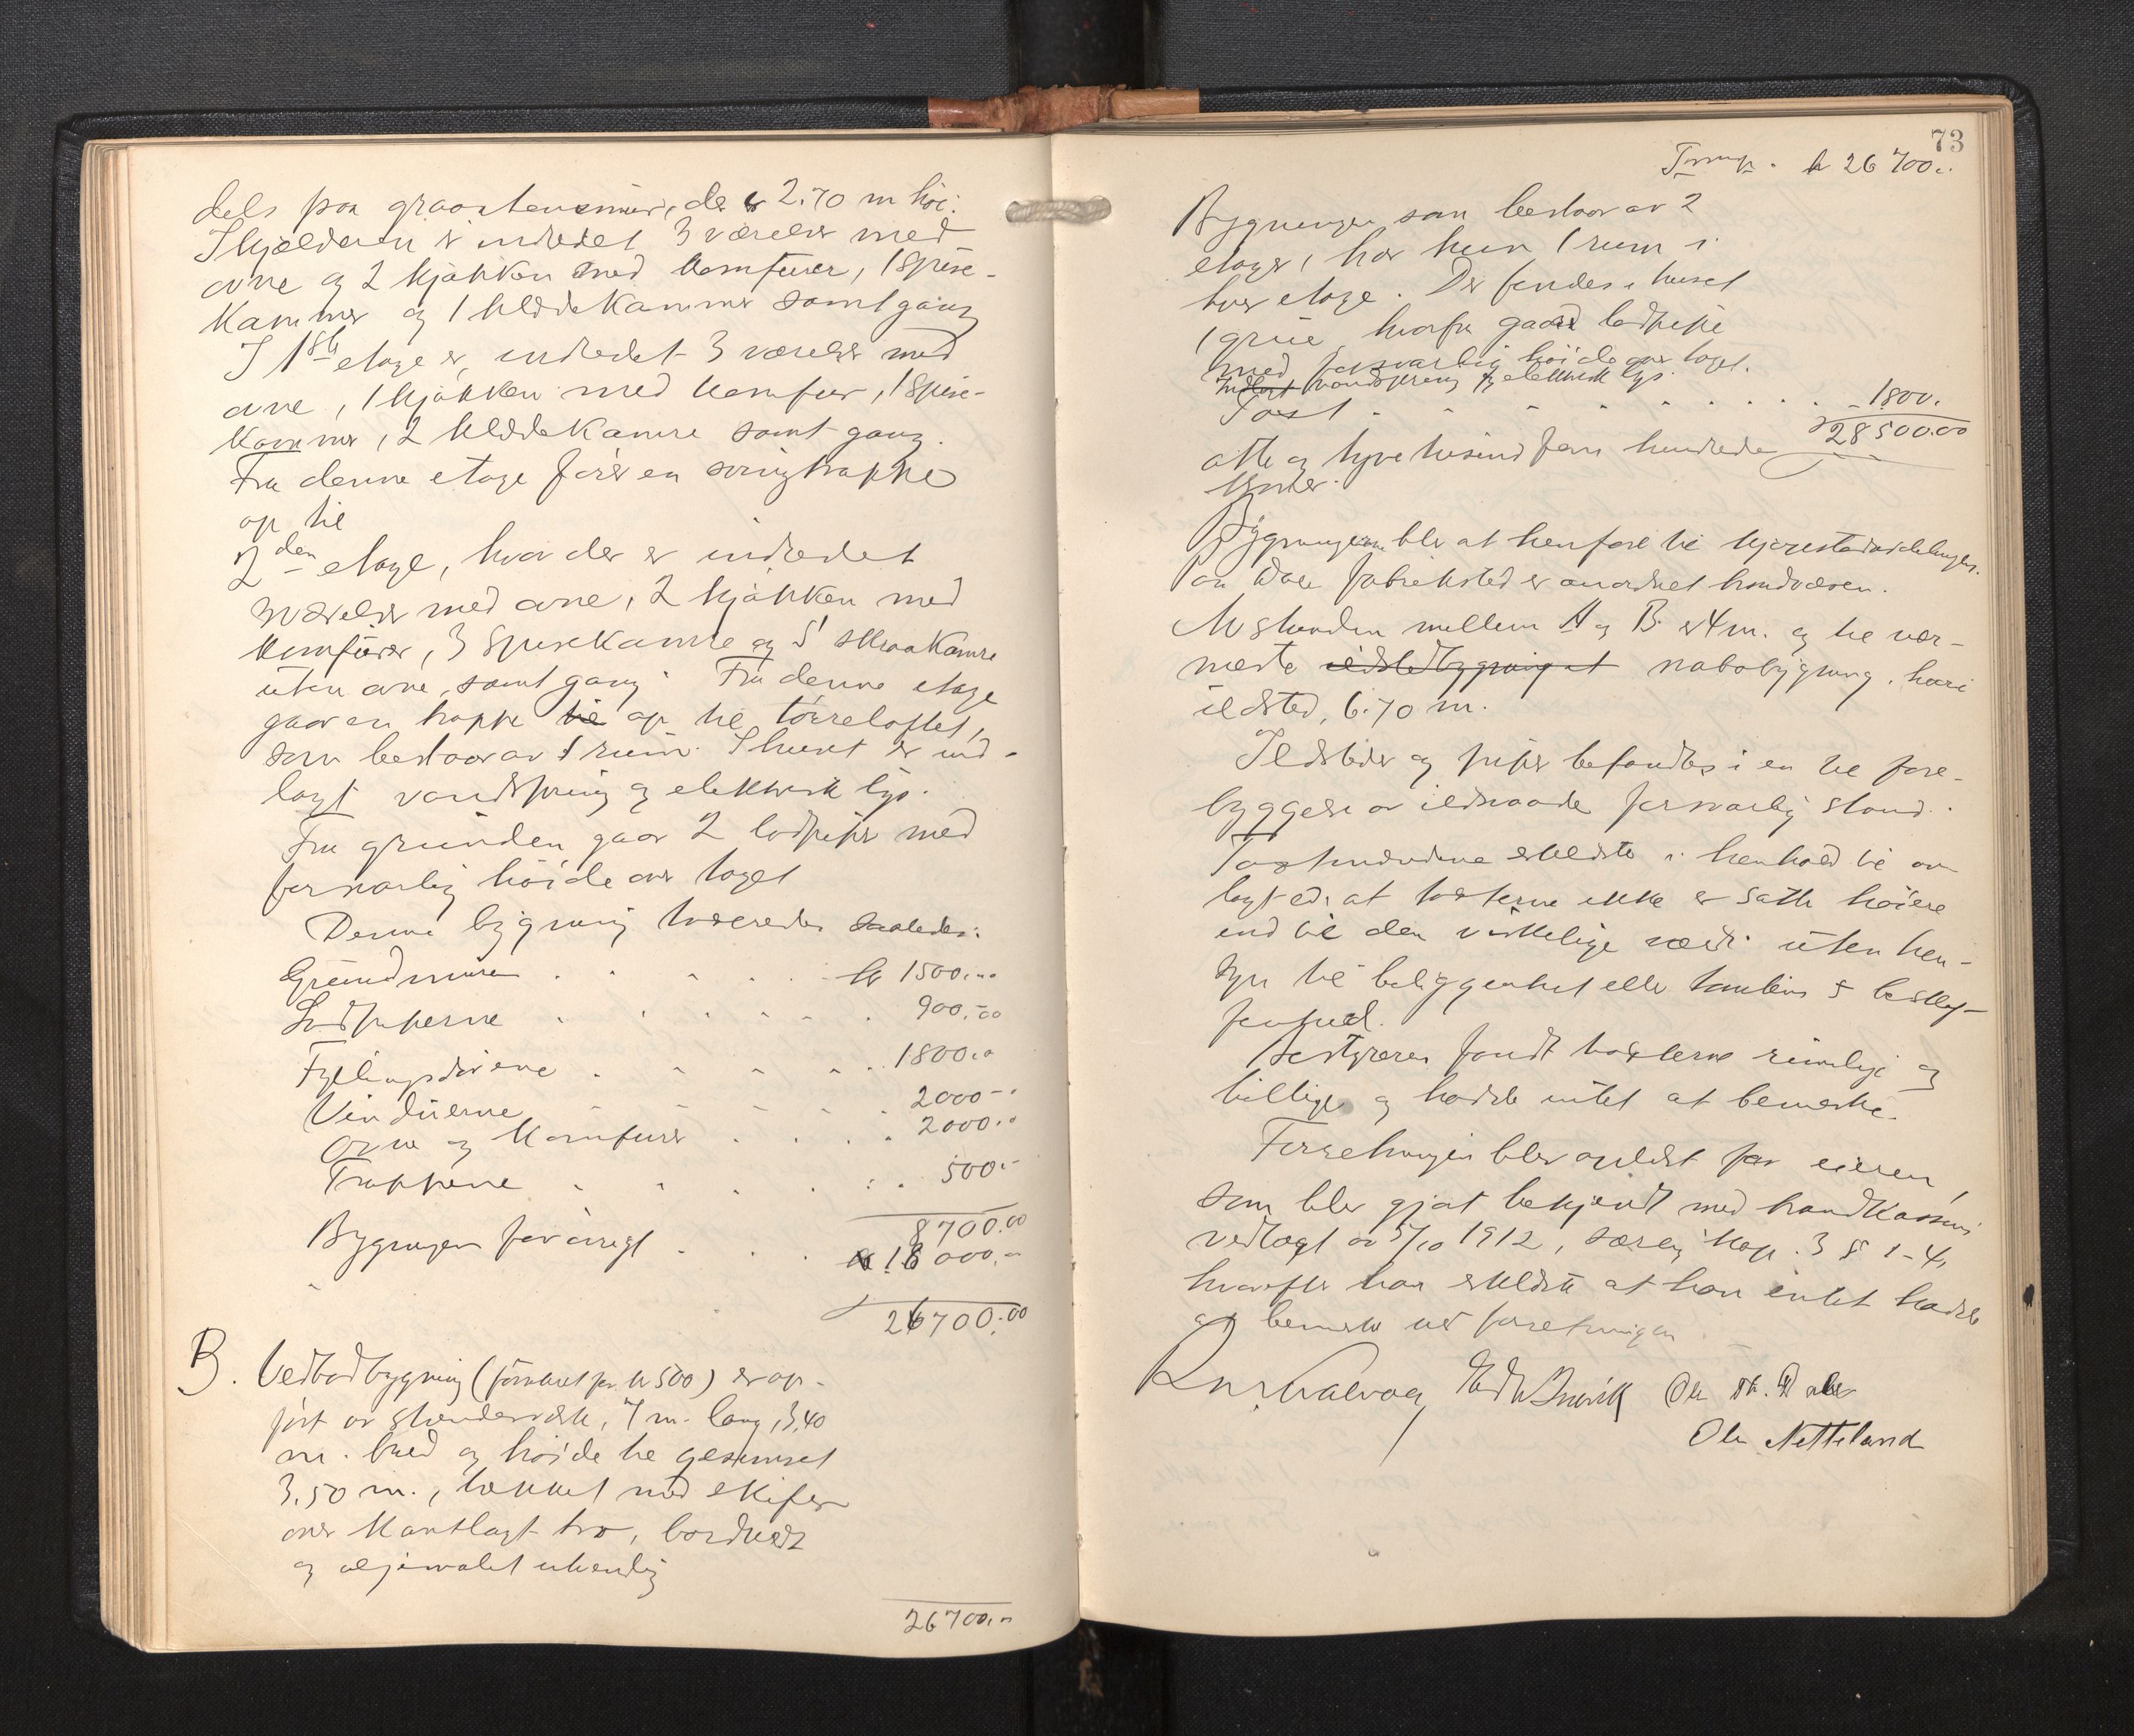 dels paa graastensmur, der er 2.70 m høi.
I kjælderen er indredet 3 værelser med
ovne og 2 kjøkken med komfurer, 1 spise-
kammer og 1 klædekammer samt gang
I 1ste etage er indredet 3 værelser med
ovne, 1 kjøkken med komfur, 1 spise-
kammer, 2 klædekamre samt gang.
Fra denne etage fører en svingtrappe
op til
2den etage, hvor der er indredet
3 værelser med ovne, 2 kjøkken med
komfurer, 3 spisekamre og 5 skraakamre
uten ovne, samt gang. Fra denne etage
gaar en trappe til op til tørreloftet,
som bestaar av 1 rum. I huset er ind-
lagt vandspring og elektrisk lys.
Fra grunden gaar 2 lodpiper med
forsvarlig høide over taget
Denne bygning taxeredes saaledes:
Grundmuren . . . . . kr 1500.00
Lodpiperne . . . . . . 900.00
Fyllingsdørene . . . . . 1800.00
Vinduerne . . . . . 2000.-
Ovne og Komfurer . . . . 2000.00
Trappene . . . . . . 500.-
8700.00
Bygningen forøvrigt . . . 18000.-
26700.00
B. Vedbodbygning (forsikret for kr 500) er op-
ført av stenderverk, 7 m. lang, 3,40
m. bred og høide til gesimset
3.50 m., tækket med skifer
over kantlagt tro, bordklædt
og oljemalet utvendig
26700.-
73
Transp. kr 26700.-
Bygningen som bestaar av 2
etager, har kun 1 rum i
hver etage. Der findes i huset
1 grue, hvorfra gaar lodpipe
med forsvarlig høide over taget.
Indlagt vandspring og elektrisk lys.
Taxt . . . . . . . . . - 1800.
28500.00
otte og tyve tusind fem hundrede
kroner.
Bygningerne blev at henføre til kjøpstadavdelingen.
Paa Dale fabriksted er anordnet brandvæsen.
Avstanden mellem A og B er 4 m. og til nær-
meste ildstedbygning et nabobygning, hvori
ildsted, 6.70 m.
Ildsteder og piper befandtes i en til fore-
byggelse av ildsvaade forsvarlig stand.
Taxtmændene erklærte i henhold til av-
lagt ed, at taxterne ikke er satte høiere
end til den virkelige værdi uten hen-
syn til beliggenhet eller
Bestyreren fandt taxterne rimelige og
billige og hadde intet at bemerke.
Forretningen blev oplæst for eieren,
som blev gjort bekjendt med brandkassens
vedtægt av 5/10 1912, særlig kap. 3 § 1-4,
hvorefter han erklærte at han intet hadde
at bemerke ved forretningen
Ole Th. Dale
Ole Netteland